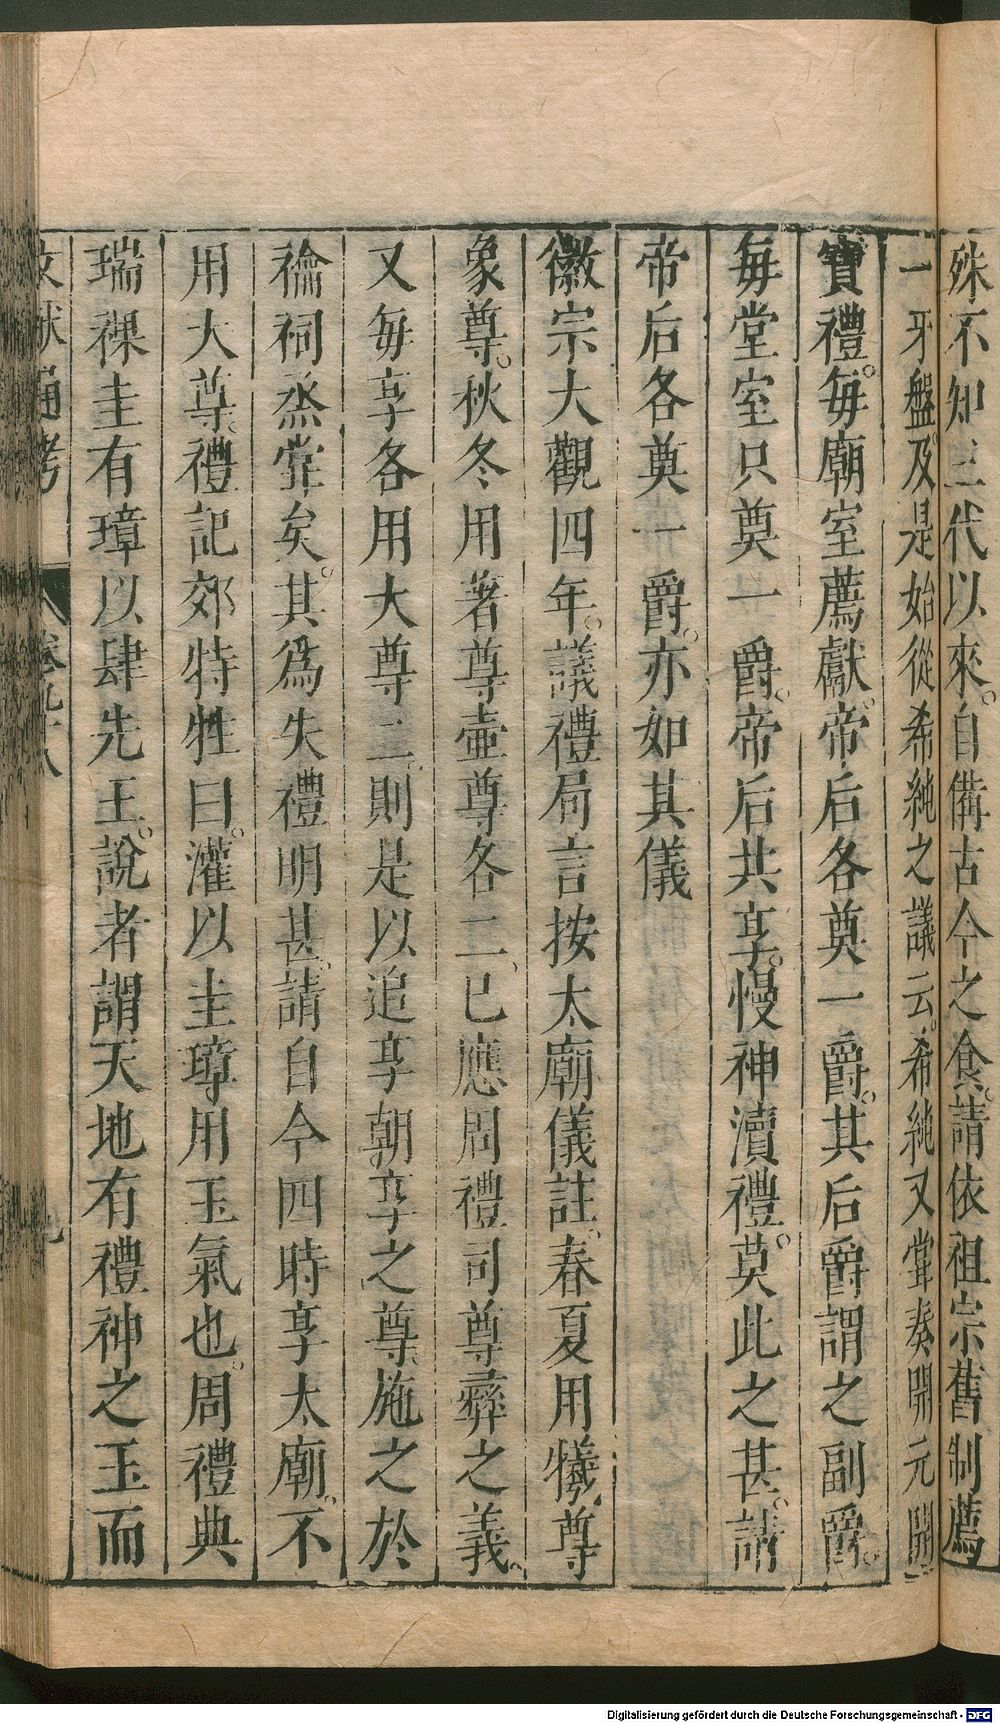 殊不知三代以來。自備古今之食。請依祖宗舊制薦
一牙盤。及是始從希純之議云。希純又甞奏開元開
寶禮。每廟室薦獻。帝后各奠一爵。其后爵謂之副爵。
每堂室只奠一爵。帝后共享。慢神瀆禮。莫此之甚。請
帝后各奠一爵。亦如其儀
徽宗大觀四年。議禮局言按太廟儀註。春夏用犧尊
象尊。秋冬用著尊壺尊各二、已應周禮司尊彛之義。
又每享各用大尊二。則是以追享朝享之尊、施之於
禴祠烝甞矣。其爲失禮明甚。請自今四時享太廟。不
用大尊。禮記郊特牲曰。灌以圭璋用玉氣也。周禮典
瑞祼圭有瓚以肆先王。說者謂天地有禮神之玉而
文獻通考
卷九十八
九
Digitalisierung gefördert durch die Deutsche Forschungsgemeinschaft - DFG